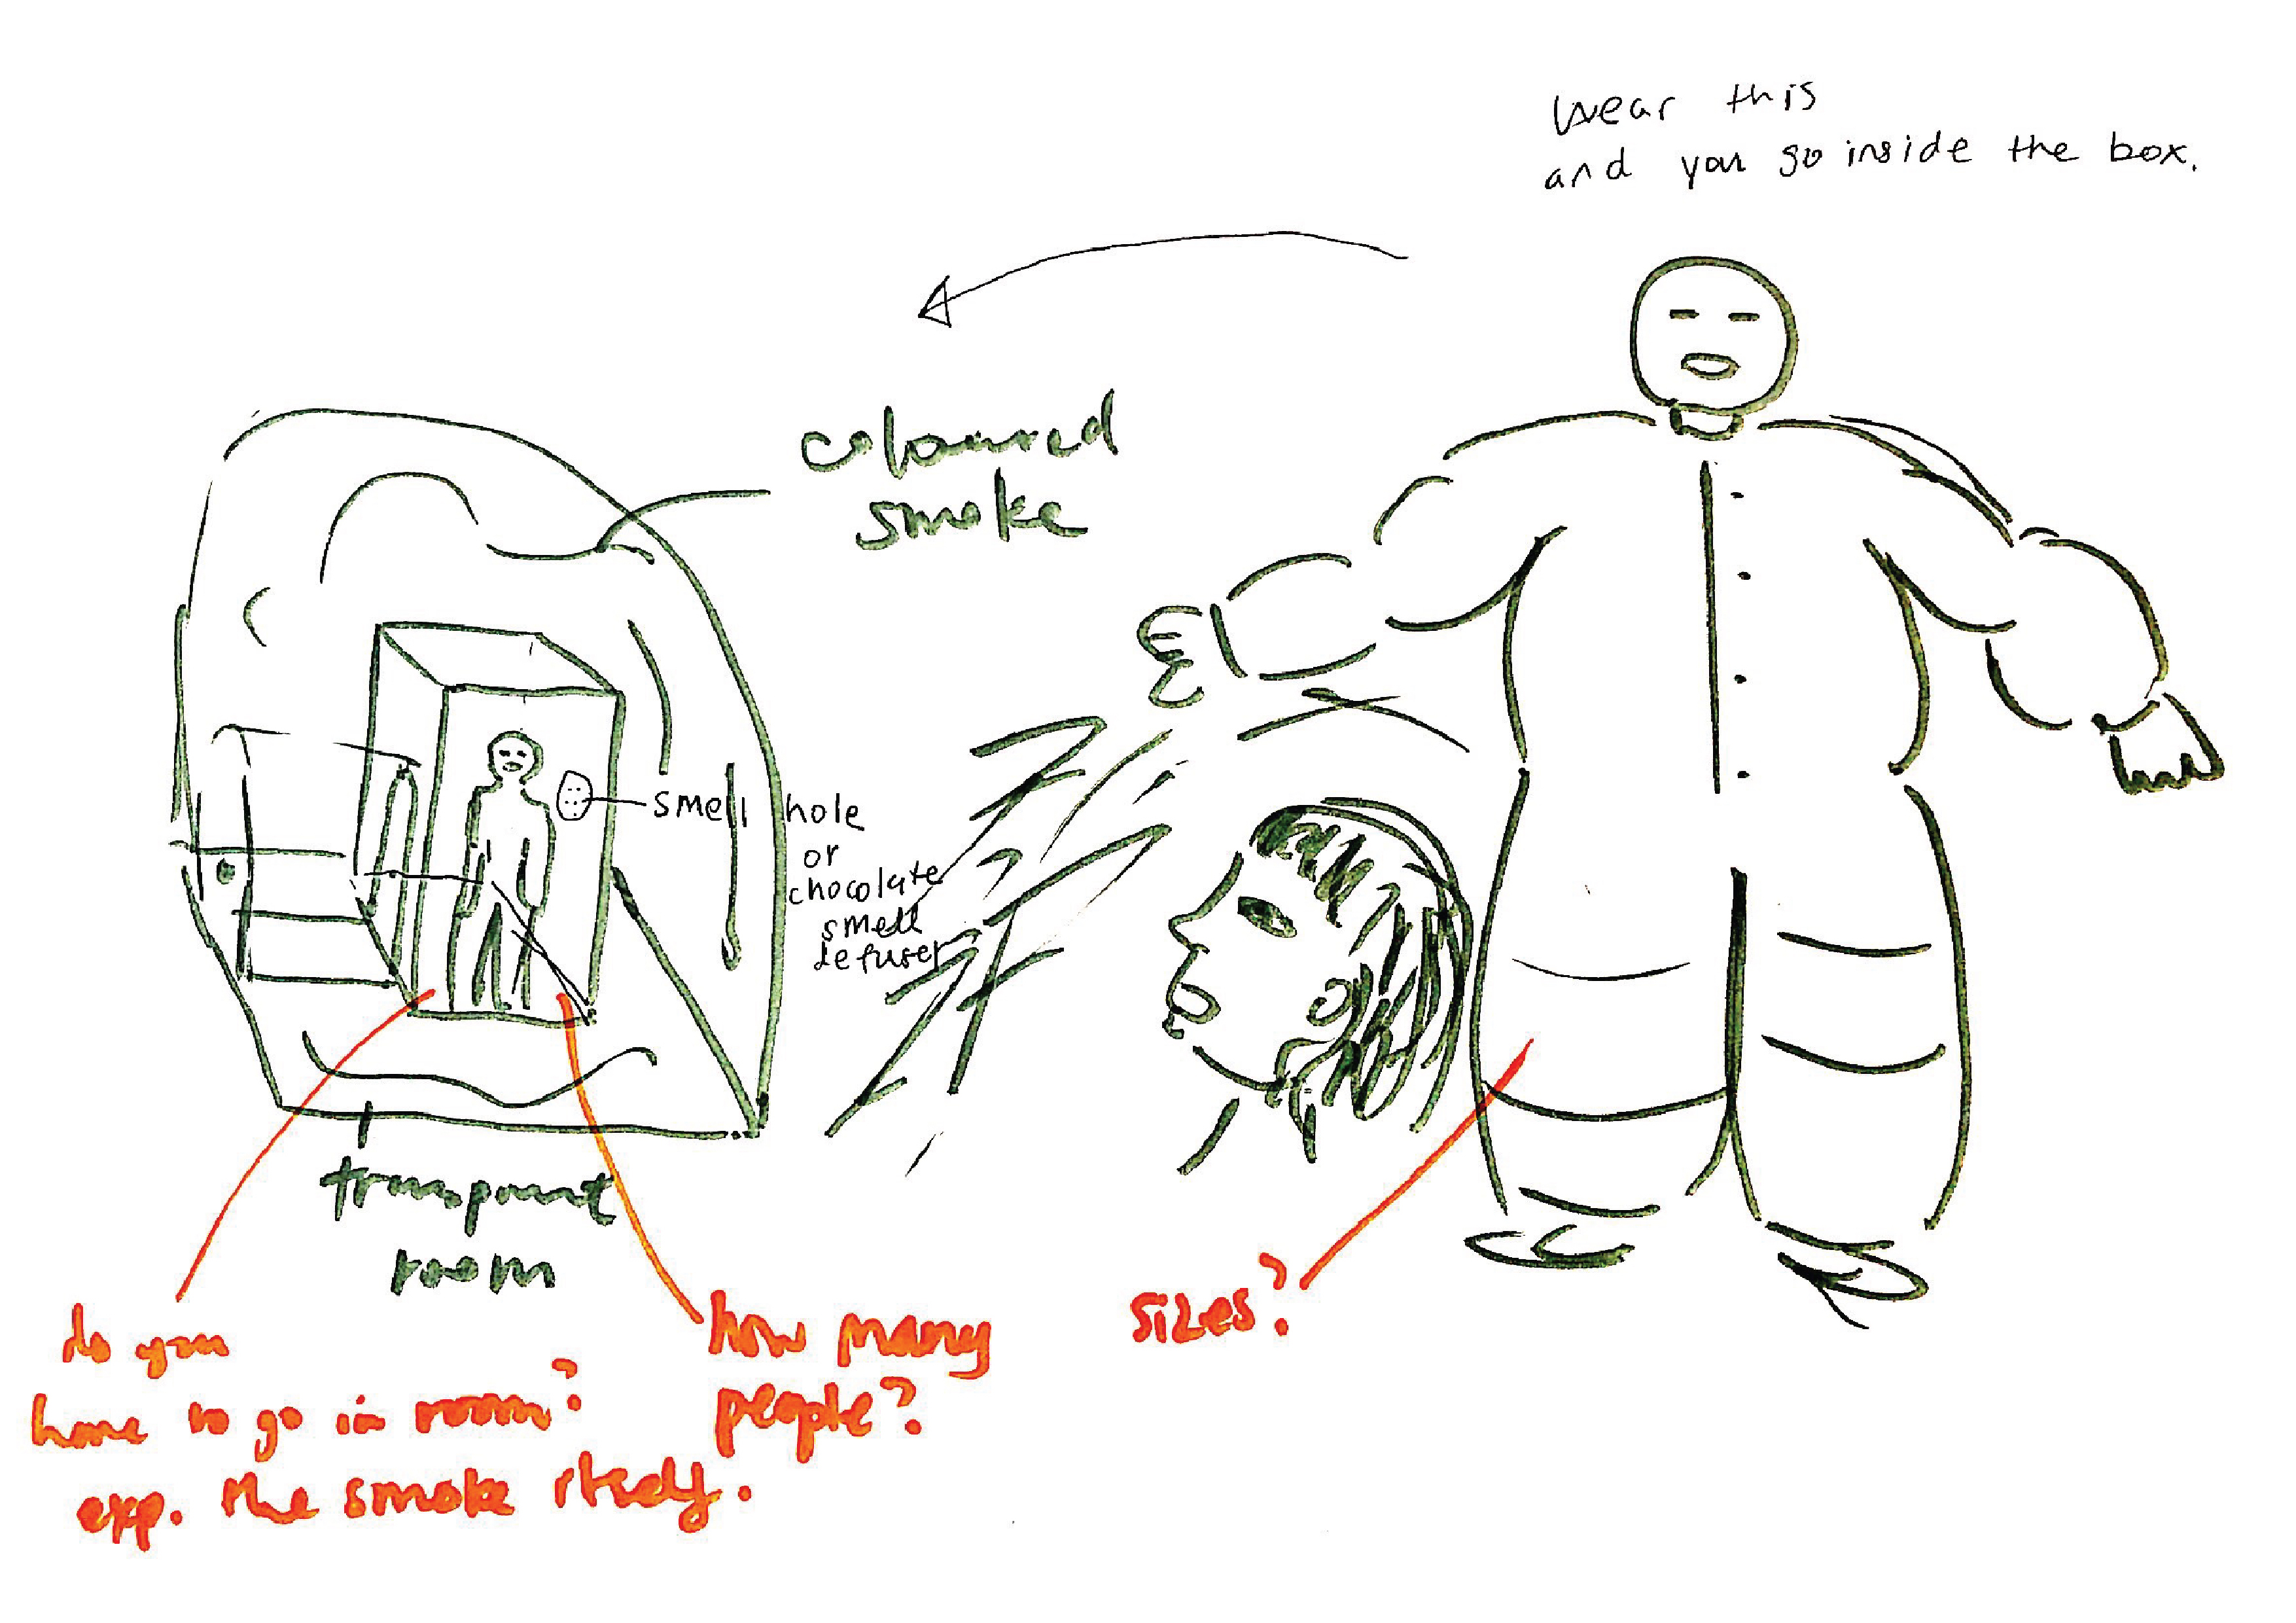 wear this
and you go inside the box.
coloured
smoke
smell hole
or
chocolate
smell
defuser
transparent
room
do you
have to go in room?
exp. the smoke itself.
how many
people?
sizes?